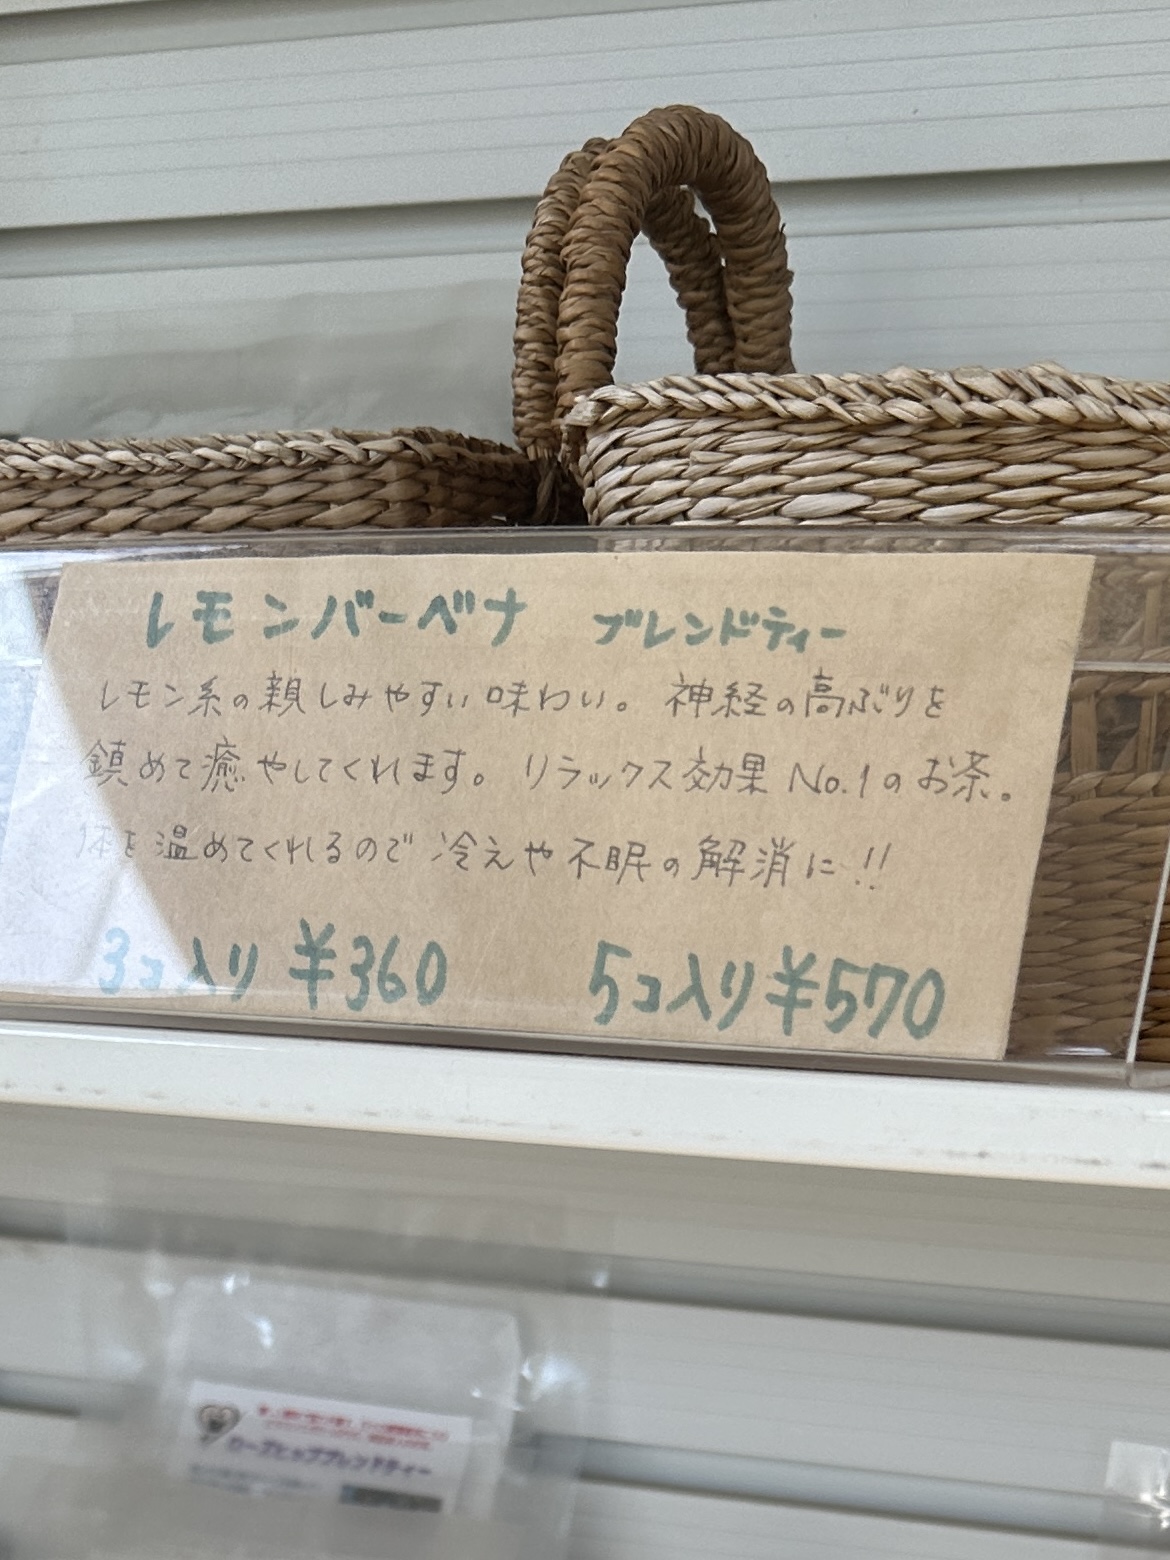 レモンバーベナ ブレンドティー
レモン系の親しみやすい味わい。神経の高ぶりを
鎮めて癒やしてくれます。リラックス効果No.1のお茶。
体を温めてくれるので冷えや不眠の解消に!!
3コ入り ¥360 5コ入り ¥570
ローズヒップブレンドティー